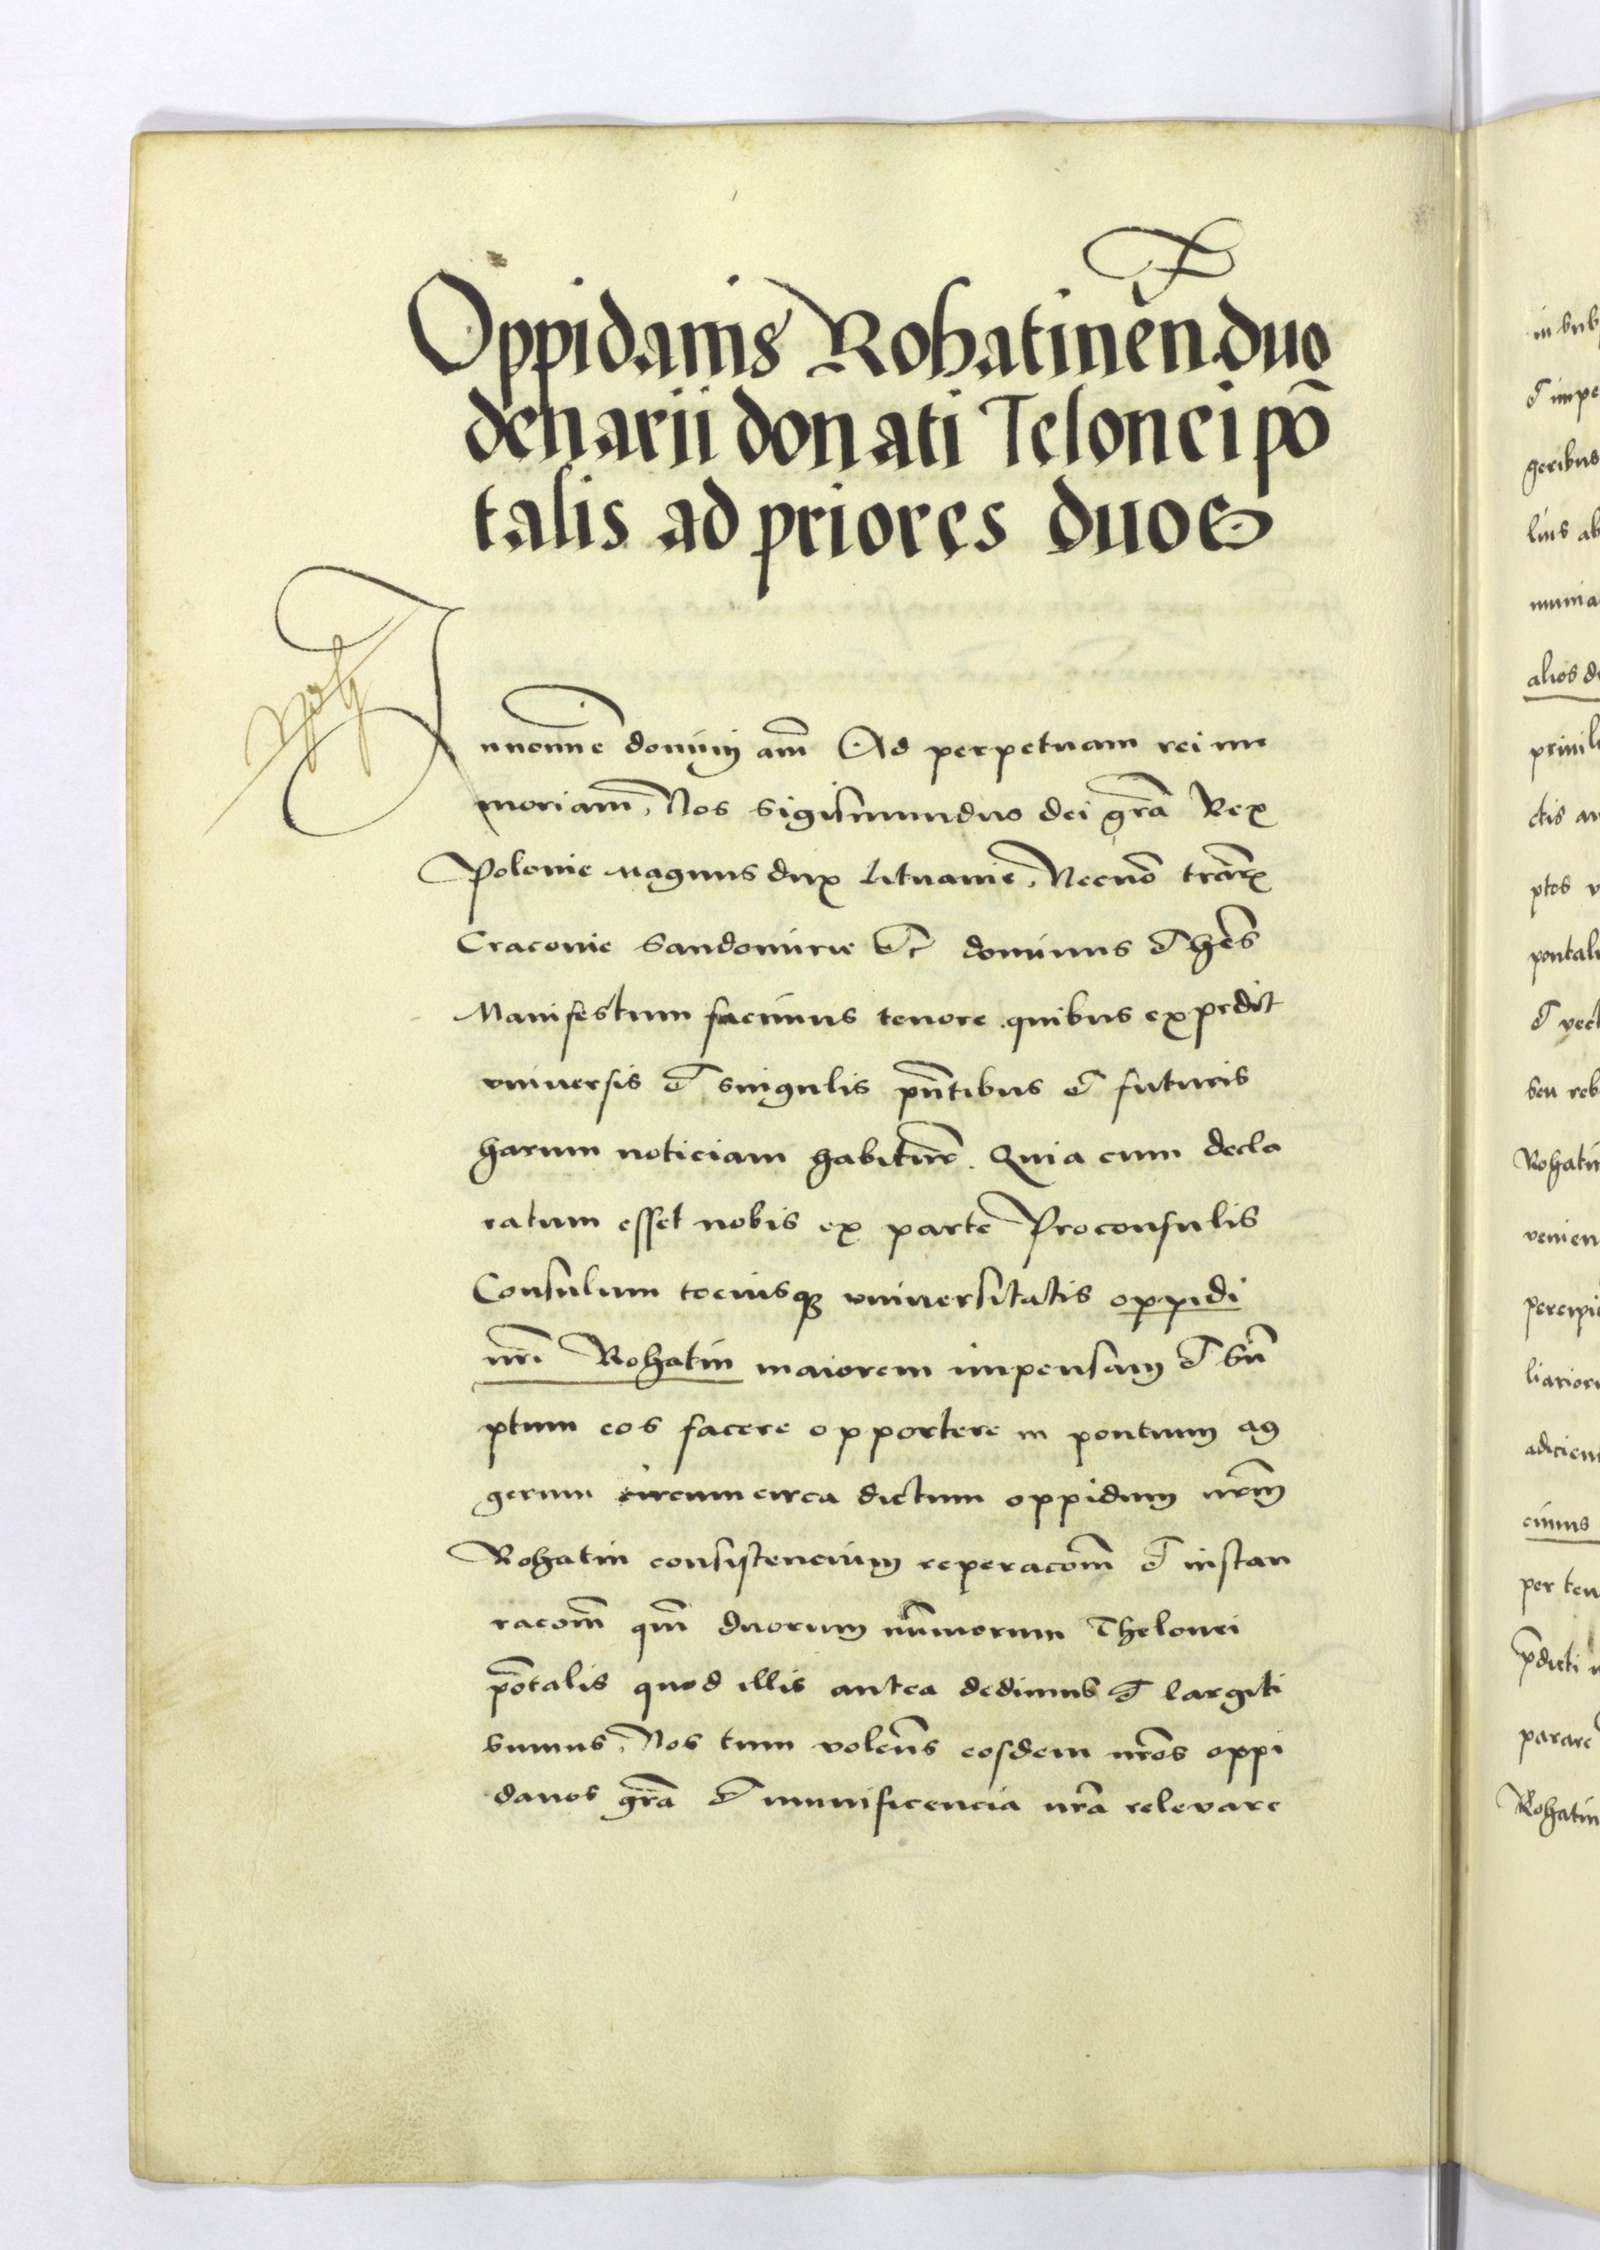 Oppidanis Rohatinen̄ duo
denarii donati Telonei pō
talis ad priores duo &
In nomīe domini am̄ Ad perpetuam rei me
moriam, Nos Sigismundus dei gr̄a Rex
Polonie Magnus dux Lituanie, Necnō trār
Craconie Sandomirie Et̄c dominus et he͞s
Manifestum facimus tenore quibus expedit
vniuersis et singulis pn̄tibus et futuris
harum noticiam habitur̄. Quia cum decla
ratum esset nobis ex parte Proconsulis
Consulum tociusq̢ vniuersitatis oppidi
nr̄i Rohatin maiorem impensam et su̅
ptum eos facere opportere in pontium ag
gerum circumcirca dictum oppidum nr̄m
Rohatin consistencium reperacōm et instau
racōm qm̄ duorum nu̅morum Thelonei
pōtalis quod illis antea dedimus et largiti
sumus, Nos tum volen̄s eosdem nr̄os oppi
danos gr̄a et munificencia nr̄a relevare
in sub
et impe
geribus
lius ab
munia
alios d
priuil
ctis
ptos
pontal
et vect
seu reb
Rohatin
venien
percipi
liarior
adicien
cimus
per ten
p̄dicti
parare
Rohatin